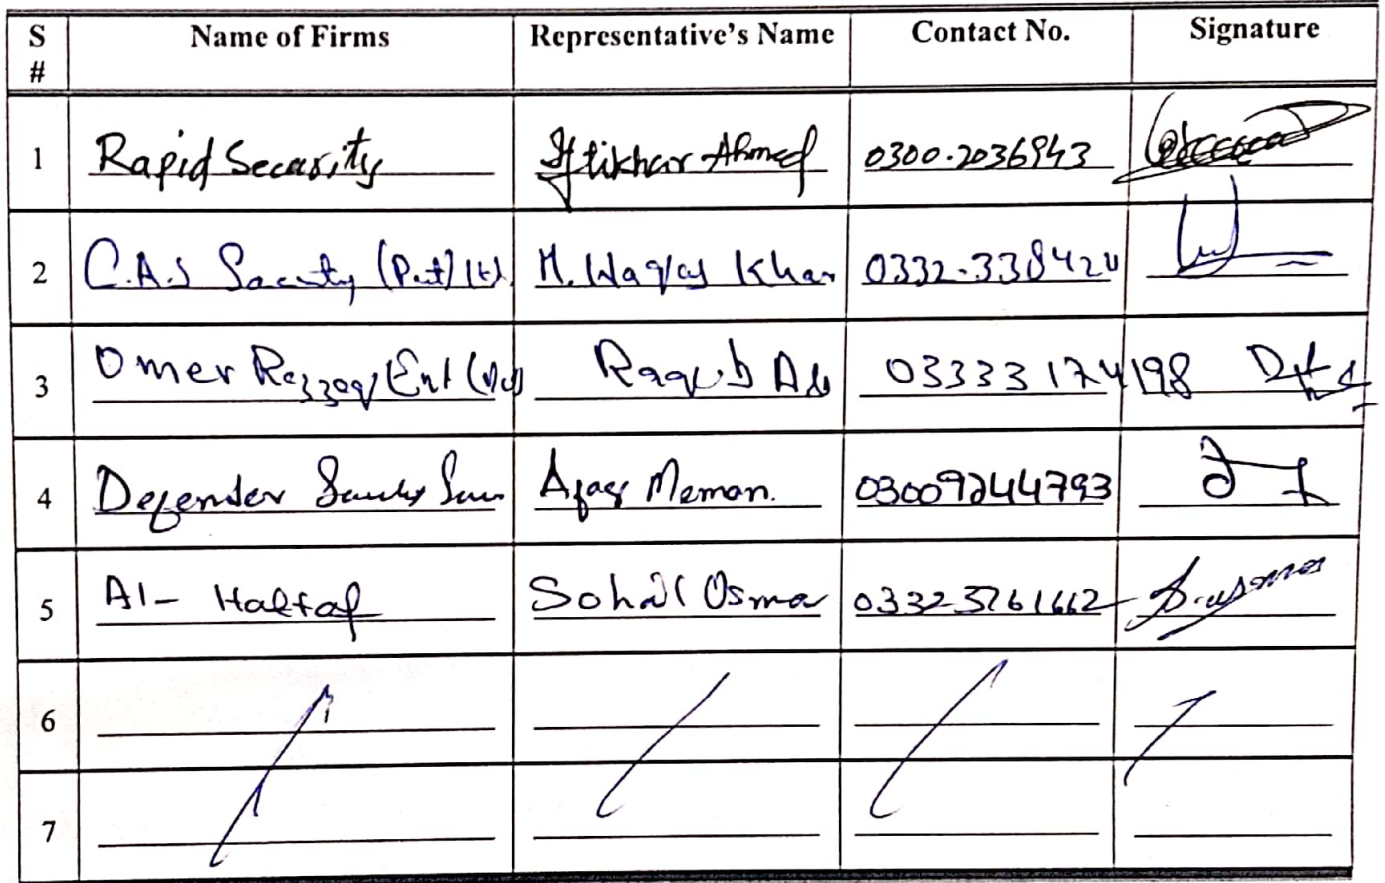 S # Name of Firms Representative's Name Contact No. Signature
1 Rapid Security Iftikhar Ahmed 0300-2036943
2 C.A.S Security (Pvt) Ltd. M. Waqas Khan 0332-3384240
3 Omer Razzaq Ent (Pvt) Raqub Ali 03333174198
4 Defender Security Ser Memon. 03009244793
5 Al- Haltaf Sohail Osman 03323761662 S. usman
6
7